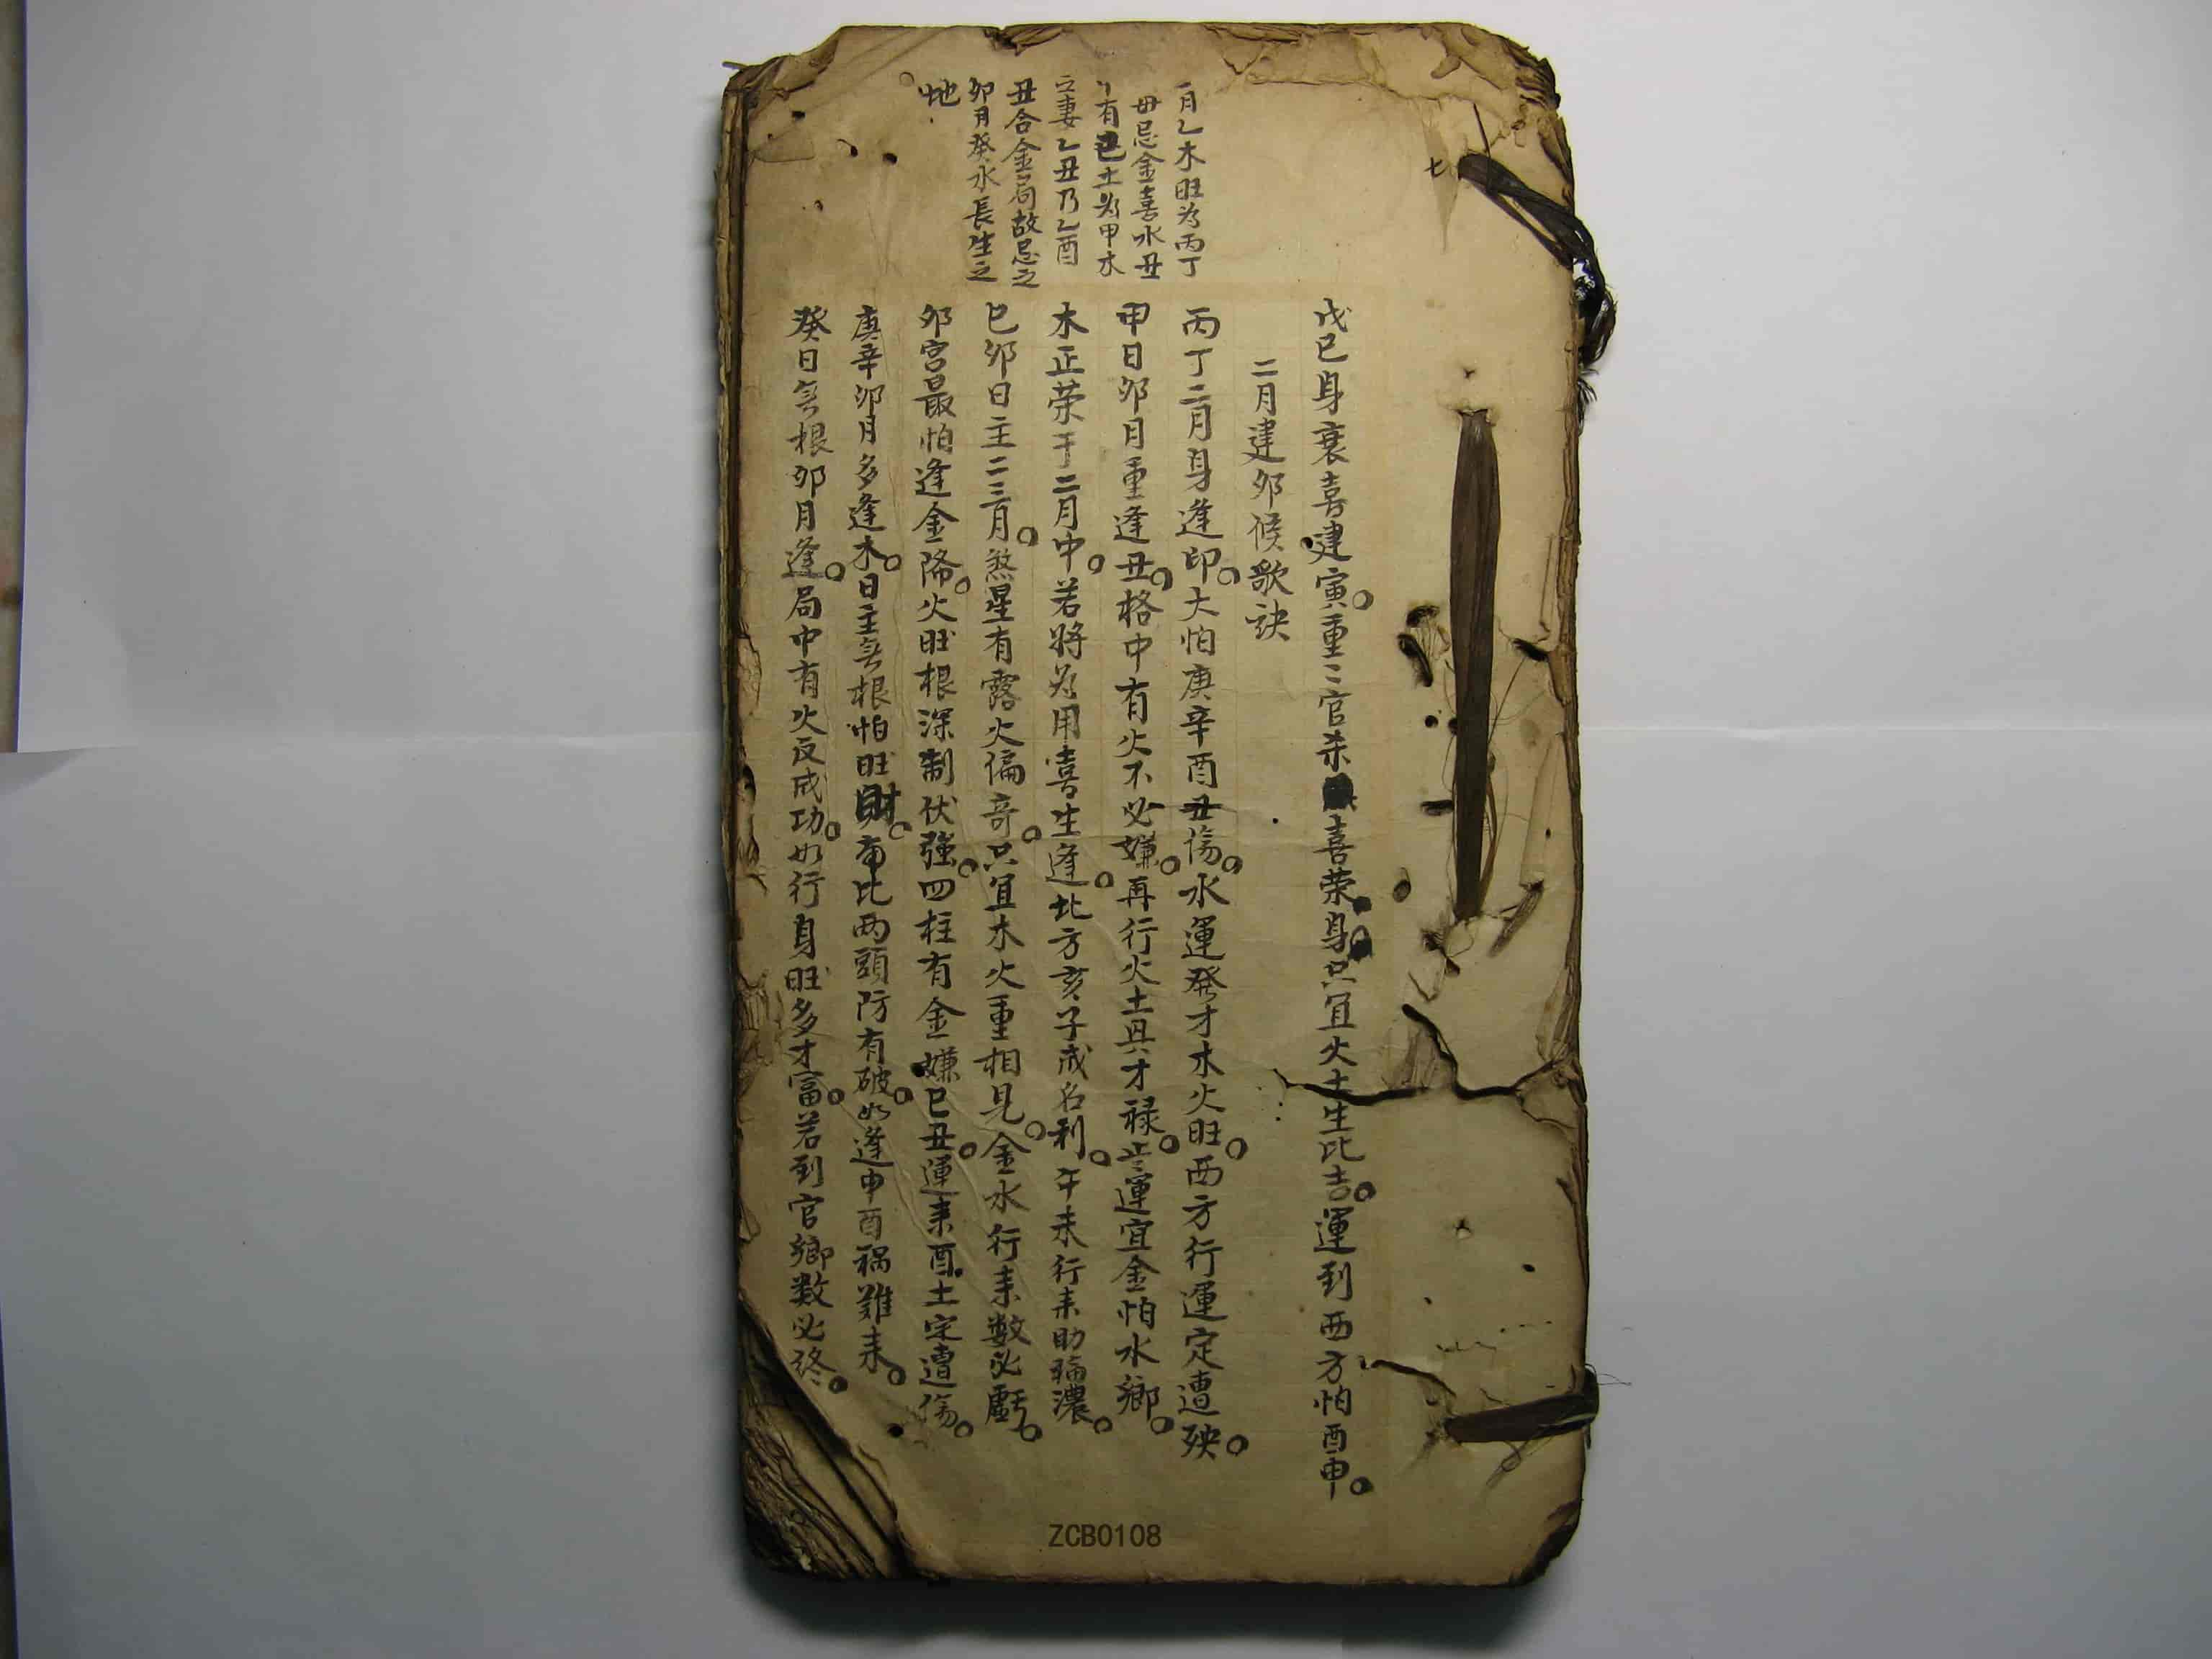 七
戊己身衰喜建寅。重〻官杀喜荣身。只宜火土生比吉。運到西方怕酉申。
二月建卯候歌訣
丙丁二月身逢印。大怕庚辛酉丑傷。水運發才木火旺。西方行運定遭殃。
甲日卯月重逢丑。格中有火不必嫌。再行火土具才禄。運宜金怕水鄉。
木正荣于二月中。若將為用喜生逢。北方亥子成名利。午未行耒助福濃。
巳卯日主二三月。煞星有露火偏奇。只宜木火重相見。金水行耒數必虧。
卯宮最怕逢金降。火旺根深制伏強。四柱有金嫌巳丑。運耒酉土定遭傷。
庚辛卯月多逢木。日主無根怕旺財。南比两頭防有破。如逢申酉禍難耒。
癸日無根卯月逢。局中有火反成功。如行身旺多才富。若到官鄉數必终。
月乙木旺為丙丁
毋忌金喜水丑
有已土為甲木
之妻乙丑乃乙酉
丑合金局故忌之
卯月癸水長生之
地
ZCB0108